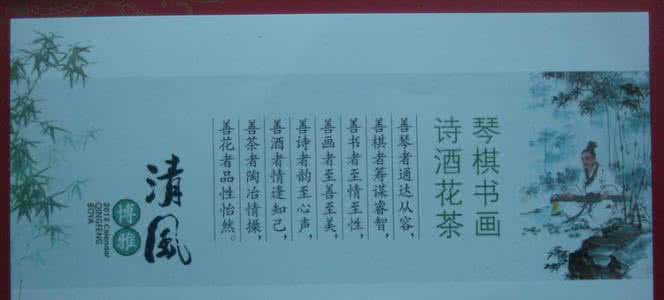 琴棋书画
诗酒花茶
善琴者通达从容，
善棋者筹谋睿智，
善书者至情至性，
善画者至善至美，
善诗者韵至心声，
善酒者情逢知己，
善茶者陶冶情操，
善花者品性怡然。
清风
博雅
2012 Calendar
QINGFENG
BOYA